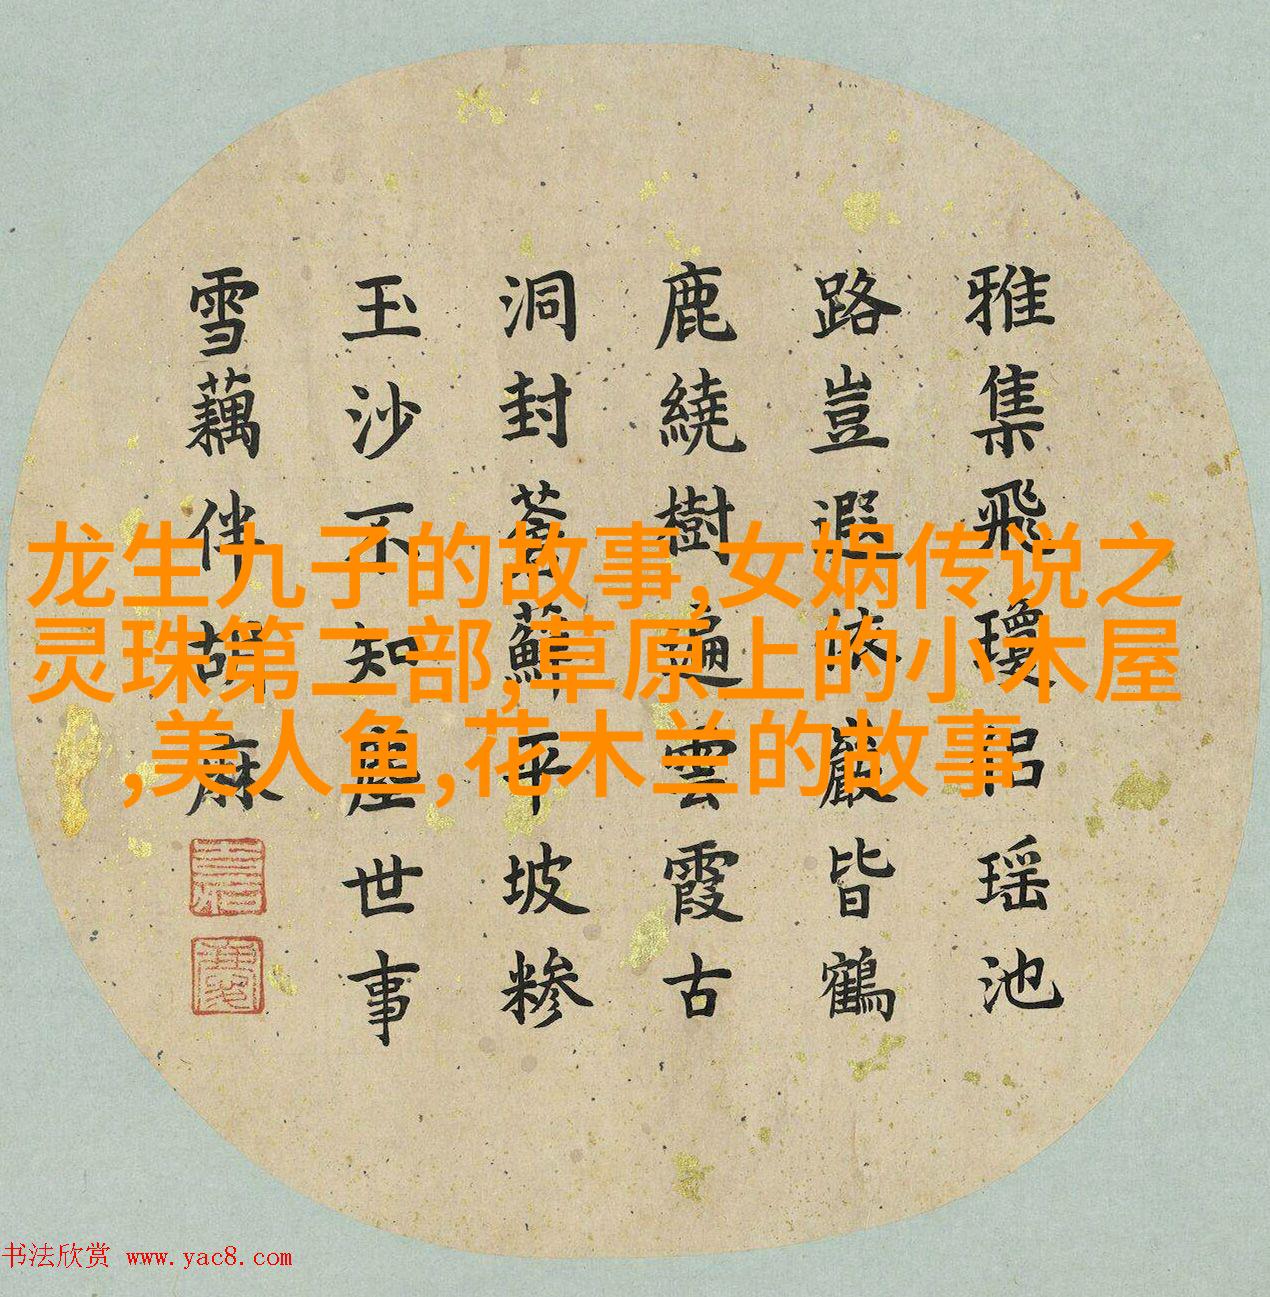 雅集飛瓊侶瑶池
路豈遐依巖皆鶴
鹿繞樹遍雲霞古
洞封蒼蘚平坡糁
玉沙不知塵世事
雪藕伴胡麻
龙生九子的故事,女娲传说之
灵珠第二部,草原上的小木屋
,美人鱼,花木兰的故事
书法欣赏 www.yac8.com